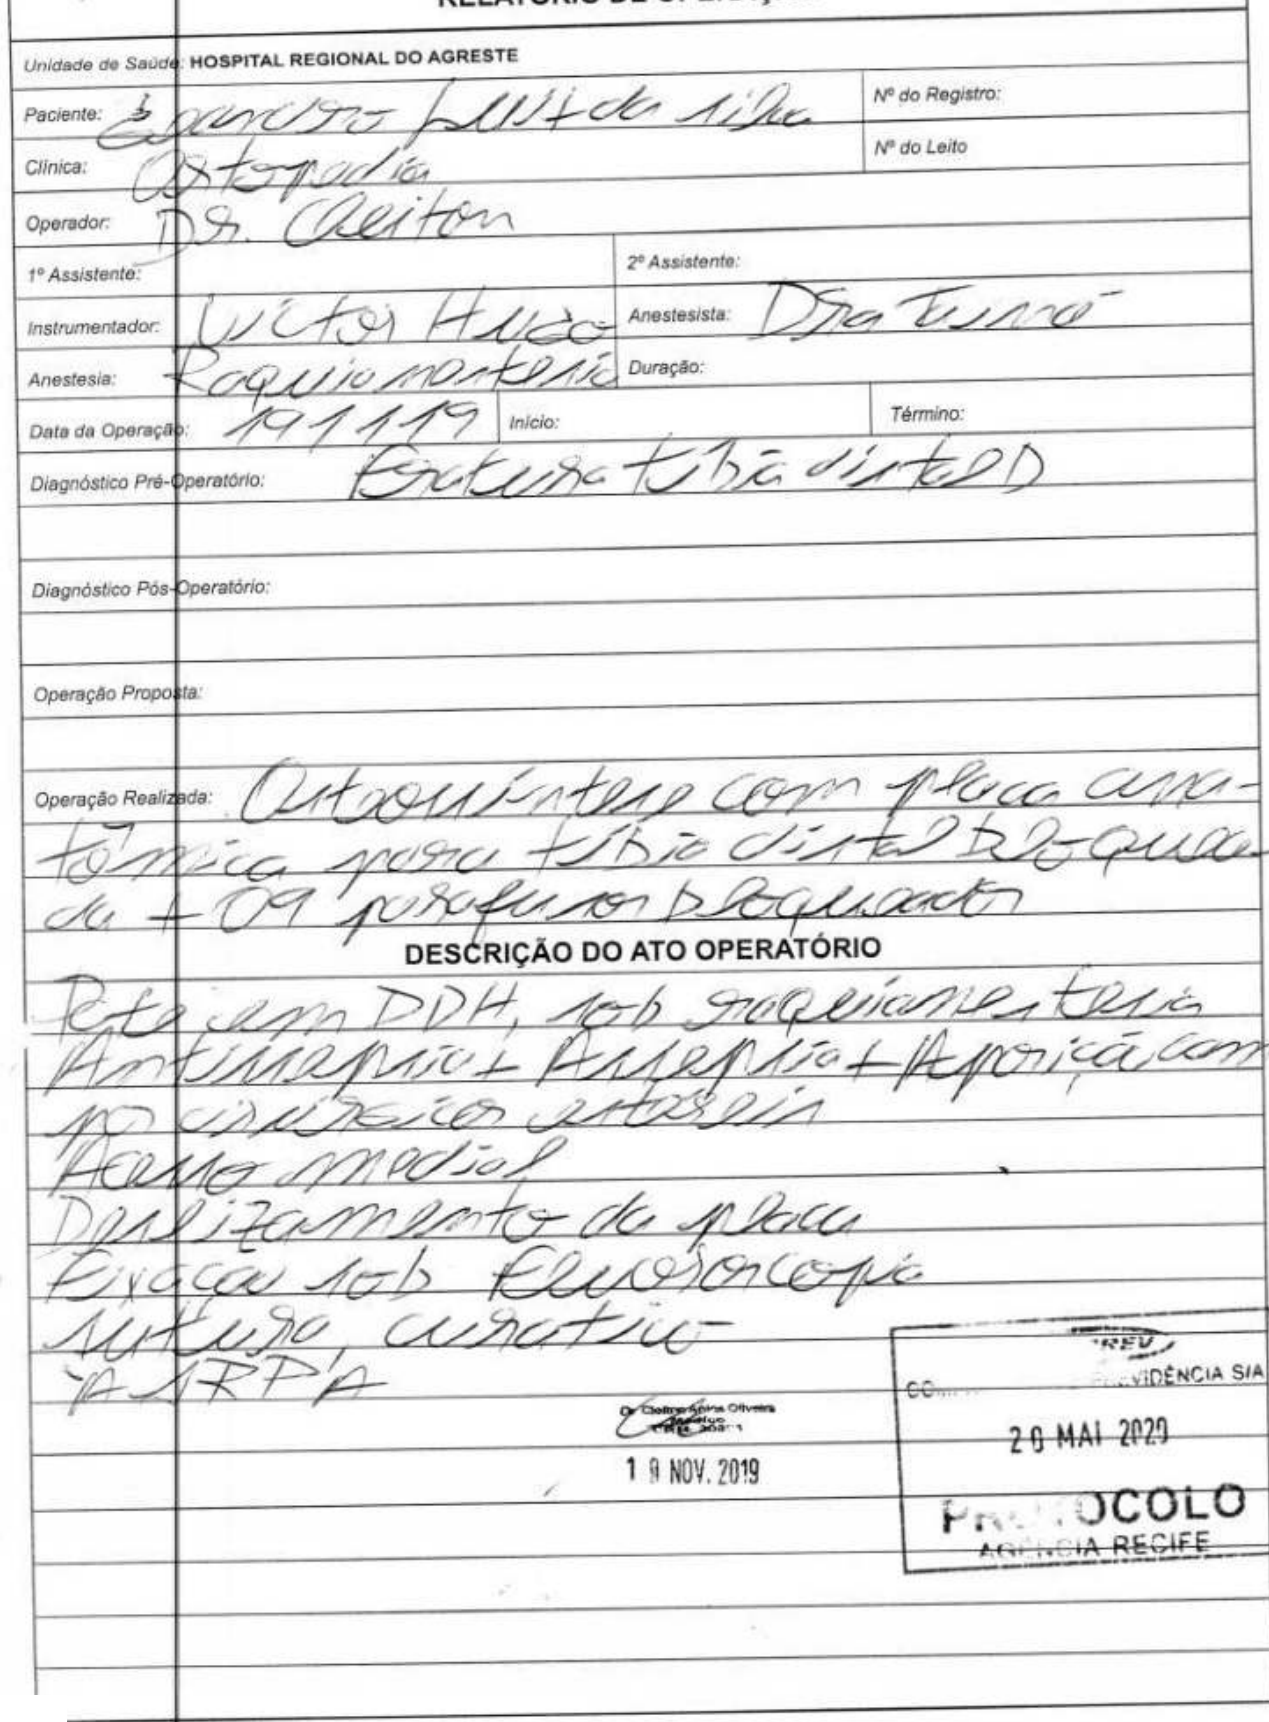 RELATÓRIO DE
Unidade de Saúde: HOSPITAL REGIONAL DO AGRESTE
Paciente: Luis da Silva
Nº do Registro:
Clínica: Ortopedia
Nº do Leito
Operador: Dr. Cleiton
1º Assistente:
2º Assistente:
Instrumentador: Victor Hugo
Anestesista: Dra
Anestesia: Raquianestesia
Duração:
Data da Operação: 191119
Início:
Término:
Diagnóstico Pré-Operatório: Fratura tíbia distal D
Diagnóstico Pós-Operatório:
Operação Proposta:
Operação Realizada: Osteossíntese com placa ana-
tômica para tíbia distal bloquea-
da + 09 parafusos bloqueados
DESCRIÇÃO DO ATO OPERATÓRIO
Pcte em DDH, sob raquianestesia
Antissepsia + Assepsia + Aposição cam
po cirúrgicos estéreis
Acesso medial
Deslizamento da placa
Fixação sob fluoroscopia
sutura, curativo
A SRPA
Oliveira
19 NOV. 2019
PREV
VIDÊNCIA S/A
20 MAI 2020
PROTOCOLO
AGÊNCIA RECIFE